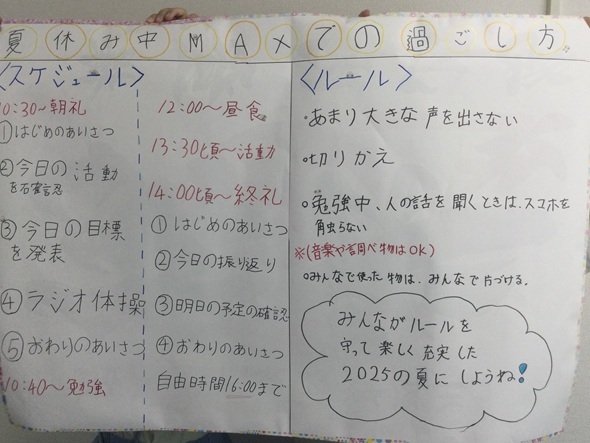 夏休み中MAXでの過ごし方
〈スケジュール〉
10:30~朝礼
①はじめのあいさつ
②今日の活動
を確認
③今日の目標
を発表
④ラジオ体操
⑤おわりのあいさつ
10:40~勉強
12:00~昼食
13:30頃~活動
14:00頃~終礼
①はじめのあいさつ
②今日の振り返り
③明日の予定の確認
④おわりのあいさつ
自由時間16:00まで
〈ルール〉
•あまり大きな声を出さない
•切りかえ
•勉強中、人の話を聞くときは、スマホを
触らない
※(音楽や調べ物はOK)
•みんなで使った物は、みんなで片づける。
みんながルールを
守って楽しく充実した
2025の夏にしようね!